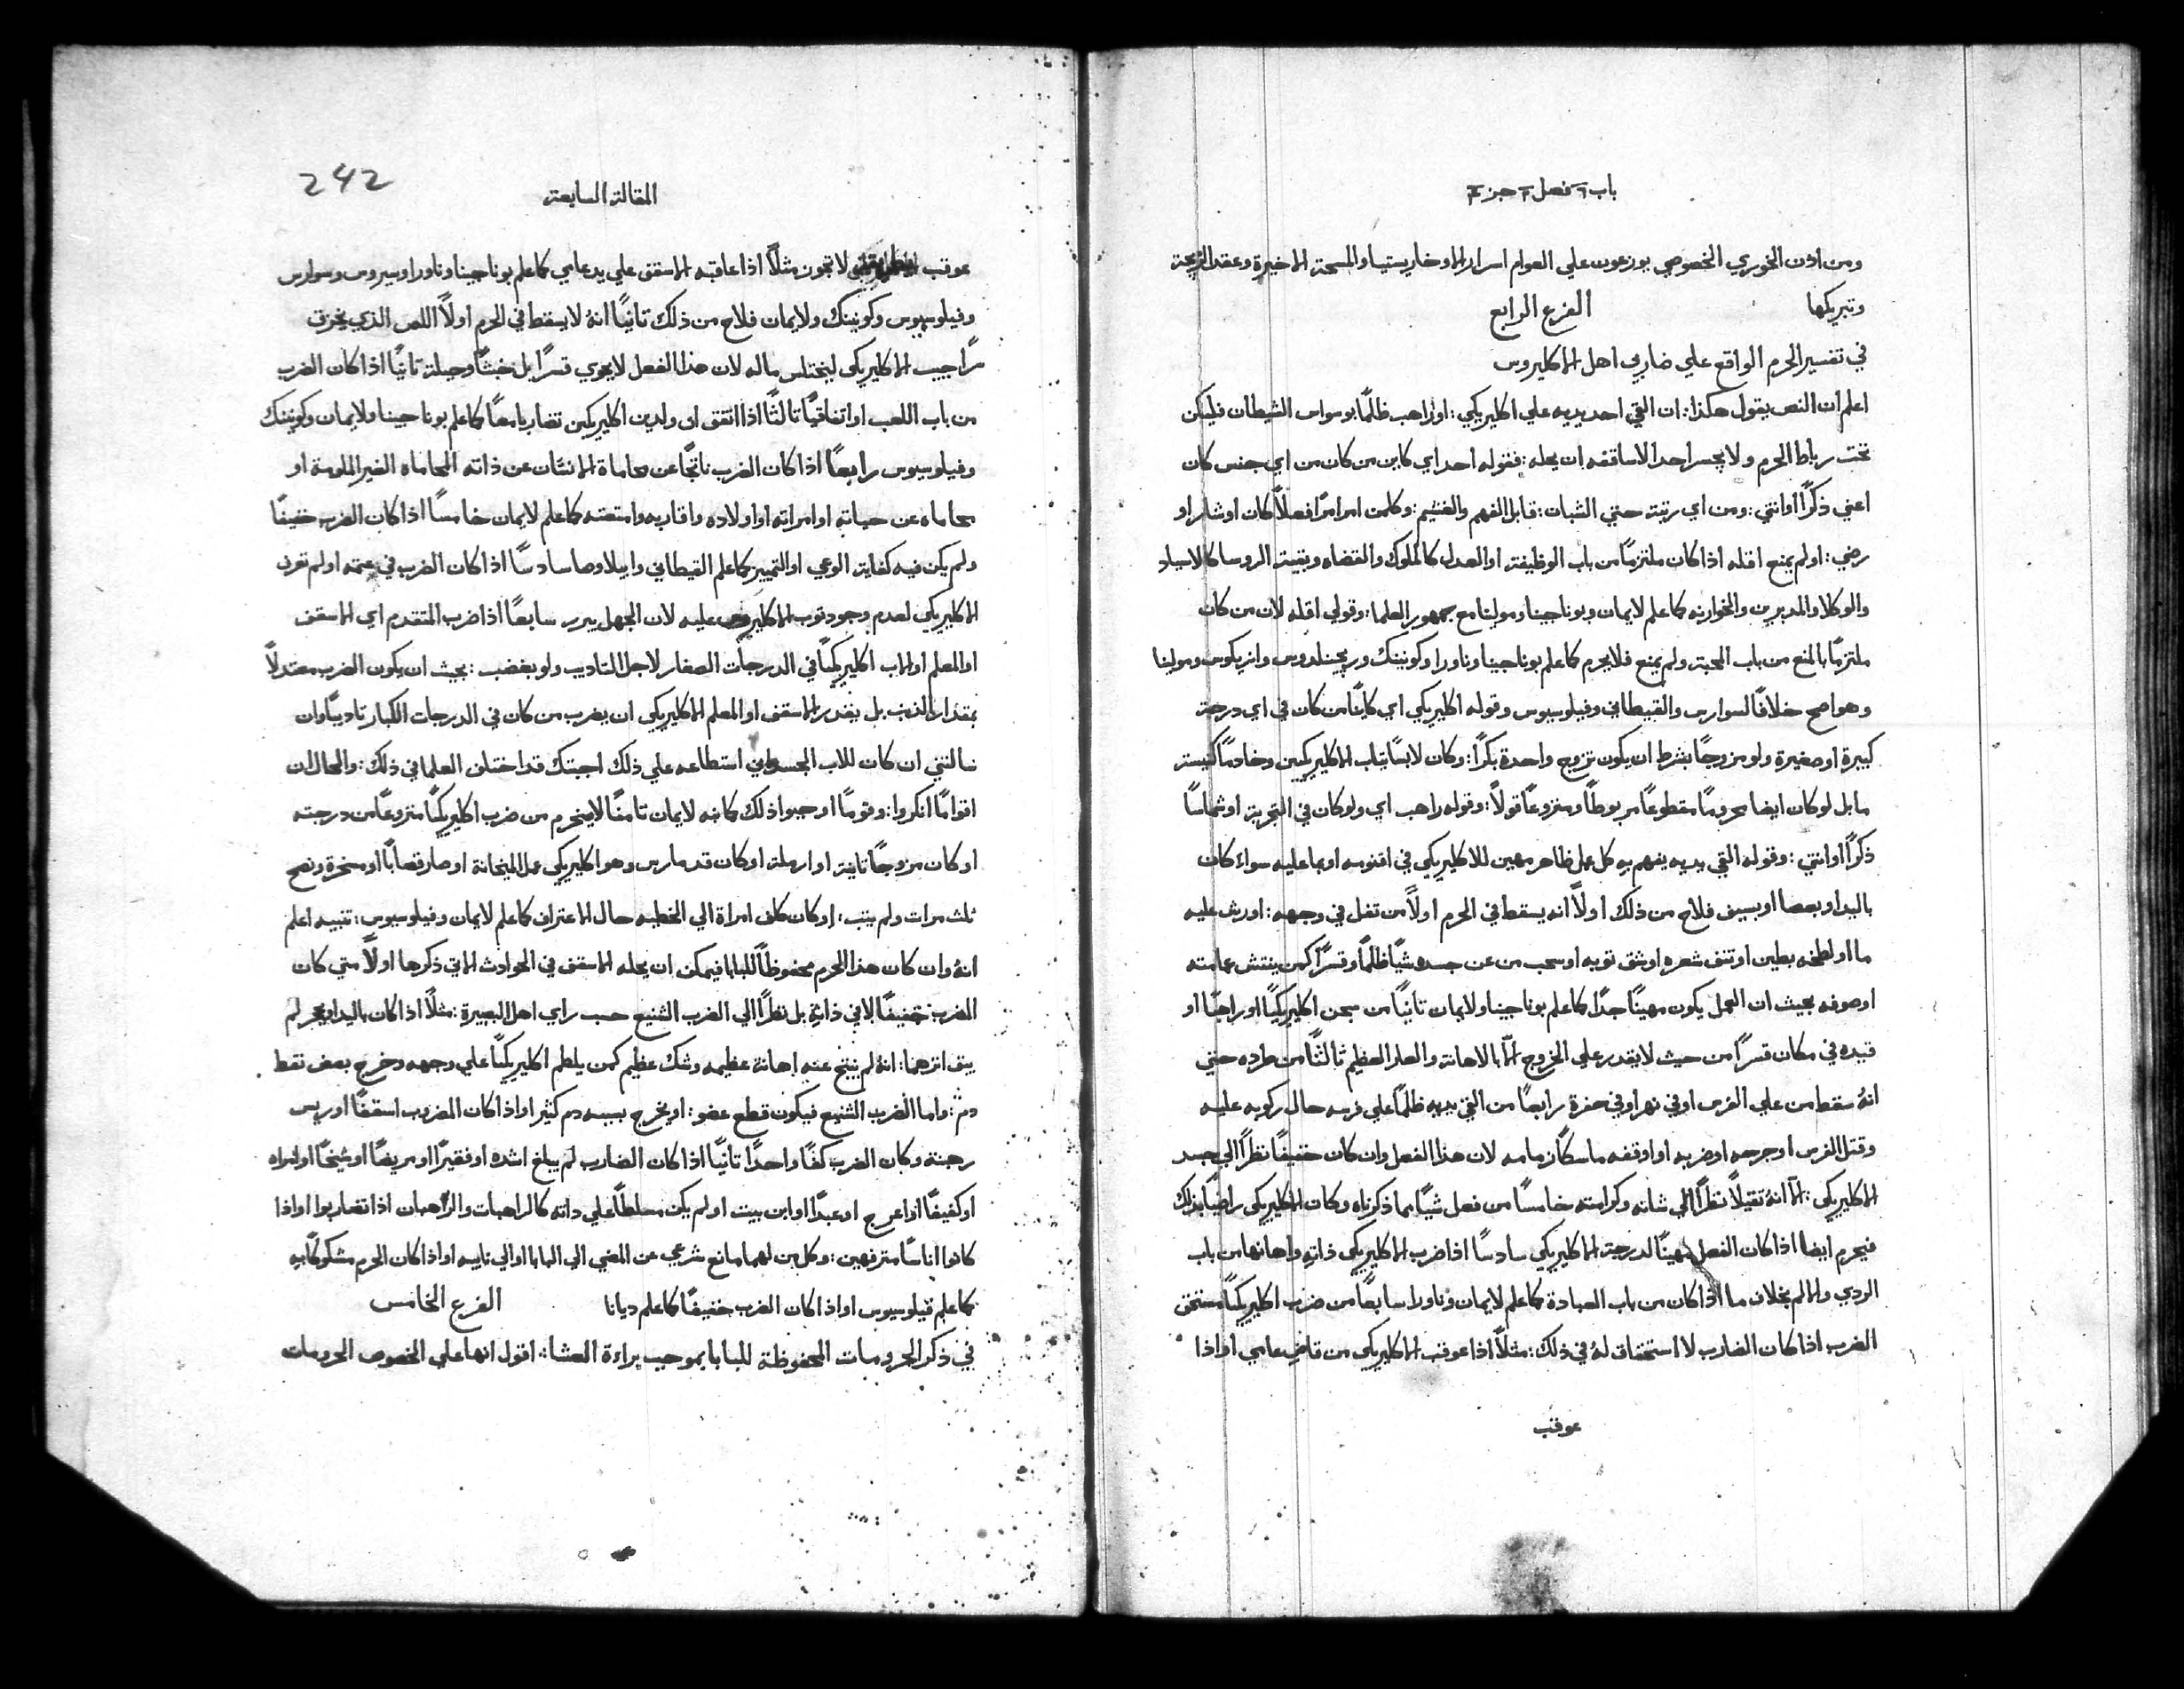 باب ٦ فصل ٣ جزء ٣
ومن اذن الخوري الخصوصي يوزعون علي العوام اسرار الاوخارستيا والمسحة الاخيرة وعقد الزيجة
وتبريكها الفرع الرابع
في تفسير الحرم الواقع علي ضاربي اهل الاكليروس
اعلم ان النص يقول هكذا: ان القي احد يديه علي اكليريكي: او راهب ظلمًا بوسواس الشيطان فليكن
تحت رباط الحرم ولا يجسر احد الاساقفه ان يحله: فقوله احد اي كاين من كان من اي جنس كان
اعني ذكرًا او انثي: ومن اي رتبة حتي الشبان: قابل الفهم والغشيم: وكلمن امر امرًا فعلاً كان او شار او
رضي: او لم يمنع اقله اذا كان ملتزمًا من باب الوظيفة او العدل كالملوك والقضاه وبقيت الروسا كالاسياد
والوكلا والمدبرين والخوارنه كما علم لايمان وبوناجينا ومولينا مع جمهور العلما: وقولي اقله لان من كان
ملتزمًا بالمنع من باب المحبة ولم يمنع فلا يحرم كما علم بوناجينا وناورا وكونينك وريجينلدوس وانريكوس ومولينا
وهو اصح خلافًا لسوارس والقبيطاني وفيلوسيوس وقوله اكليريكي اي كاينًا من كان في اي درجة
كبيرة او صغيرة ولو مزوجًا بشرط ان يكون تزوج واحدة بكرًا: وكان لابسًا تياب الاكليريكيين وخادمًا كنيسة
ما بل لو كان ايضا محرومًا مقطوعًا مربوطًا ومنزوعًا قولاً: وقوله راهب اي ولو كان في التجربة او شماسًا
ذكرًا او انثي: وقوله القي يديه يفهم به كل عمل ظاهر مهين للاكليريكي في اقنومه او بما عليه سواء كان
باليد او بعصا او بسيف فلاح من ذلك اولاً انه يسقط في الحرم اولاً من تفل في وجهه: او رش عليه
ما او لطخه بطين او نتف شعره او شق توبه او سحب من عن جسده شيًا ظلمًا وقسرًا كمن ينتش عمامته
او صوفه بحيث ان العمل يكون مهينًا جدًا كما علم بوناجينا ولايمان تانيًا من سجن اكليريكيًا او راهبًا او
قيده في مكان قسرًا من حيث لا يقدر علي الخروج الّا بالاهانة والعار العظيم ثالثًا من طرده حتي
انهُ سقط من علي الفرس او في نهر او في حفرة رابعًا من القي يديه ظلمًا علي فرسه حال ركوبه عليه
وقتل الفرس او جرحه او ضربه او اوقفه ماسكًا زمامه لان هذا الفعل وان كان خفيفًا نظرًا الي جسد
الاكليريكي: الّا انهُ تقيلاً نظرًا الي شانه وكرامته خامسًا من فعل شيًا مما ذكرناه وكان الاكليريكي راضيًا بذلك
فيحرم ايضا اذا كان الفعل مهينًا لدرجة الاكليريكي سادسًا اذا ضرب الاكليريكي ذاته واهانها من باب
الردي والالم بخلاف ما اذا كان من باب العبادة كما علم لايمان وناورا سابعًا من ضرب اكليريكيًا مستحق
الضرب اذا كان الضارب لا استحقاق لهُ في ذلك: مثلاً اذا عوقب الاكليريكي من قاضٍ عامي او اذا
عوقب
المقالة السابعة
242
عوقب لا تجوز مثلاً اذا عاقبه الاسقف علي يد عامي كما علم بوناجينا وناورا وسيروس وسوارس
وفيلوسيوس وكونينك ولايمان فلاح من ذلك تانيًا انهُ لا يسقط في الحرم اولاً اللص الذي يخزق
سرًا جيب الاكليريكي ليختلس ماله لان هذا الفعل لا يحوي قسرًا بل خبثًا وحيلة تانيًا اذا كان الضرب
من باب اللعب او اتفاقيًا تالثًا اذا اتفق ان ولدين اكليريكين تضاربا معًا كما علم بوناجينا ولايمان وكونينك
وفيلوسيوس رابعًا اذا كان الضرب ناتجًا عن محاماة الانسان عن ذاته المحاماه الغير الملومة او
محاماه عن حياته او امراته او اولاده واقاربه وامتعته كما علم لايمان خامسًا اذا كان الضرب خفيفًا
ولم يكن فيه كفاية الوعي او التمييز كما علم القبيطاني وابيلا وصا سادسًا اذا كان الضرب في عتمه او لم تعرف
الاكليريكي لعدم وجود توب الاكليروس عليه لان الجهل يبرر سابعًا اذا ضرب المتقدم اي الاسقف
او المعلم او الاب اكليريكيًا في الدرجات الصغار لاجل التاديب ولو بغضب: بحيث ان يكون الضرب معتدلاً
بمقدار الذنب بل يقدر الاسقف او المعلم الاكليريكي ان يضرب من كان في الدرجات الكبار تاديبًا وان
سالتني ان كان للاب الجسداني استطاعه علي ذلك اجبتك قد اختلف العلما في ذلك: والحال ان
اقوامًا انكروا: وقومًا اوجبوا ذلك كمانه لايمان تامنًا لا ينحرم من ضرب اكليريكيًا منزوعًا من درجته
او كان مزوجًا تانية او ارملة او كان قد مارس وهو اكليريكي عمل الميخانة او صار قصابًا او مسخرة ونصح
ثلث مرات ولم يتب: او كان كلف امراة الي الخطيه حال الاعتراف كما علم لايمان وفيلوسيوس: تنبيه اعلم
انهُ وان كان هذا الحرم محفوظًا للبابا فيمكن ان يحله الاسقف في الحوادث الاتي ذكرها اولاً متي كان
الضرب خفيفًا لا في ذاتهِ بل نظرًا الي الضرب الشنيع حسب راي اهل البصيرة: مثلاً اذا كان باليد او بحجر لم
يبق اثرهما: انهُ لم ينتج عنه اهانة عظيمه وشك عظيم كمن يلطم اكليريكيًا علي وجهه وخرج بعض نقط
دم: واما الضرب الشنيع فيكون قطع عضو: او يخرج بسببه دم كثير او اذا كان المضروب اسقفًا او ريس
رهبنة وكان الضرب كفًا واحدًا تانيًا اذا كان الضارب لم يبلغ اشده او فقيرًا او مريضًا او شيخًا او امراه
او كفيفًا او اعرج او عبدًا او ابن بيت او لم يكن مسلطًا علي ذاته كالراهبات والراهبان اذا تضاربوا او اذا
كانوا اناسًا مترفهين: وكل من لهما مانع شرعي عن المضي الي البابا او الي نايبه او اذا كان الحرم مشكوكًا به
كما علم فيلوسيوس او اذا كان الضرب خفيفًا كما علم ديانا الفرع الخامس
في ذكر الحرومات المحفوظة للبابا بموجب براءة العشا: اقول انها علي الخصوص الحرومات